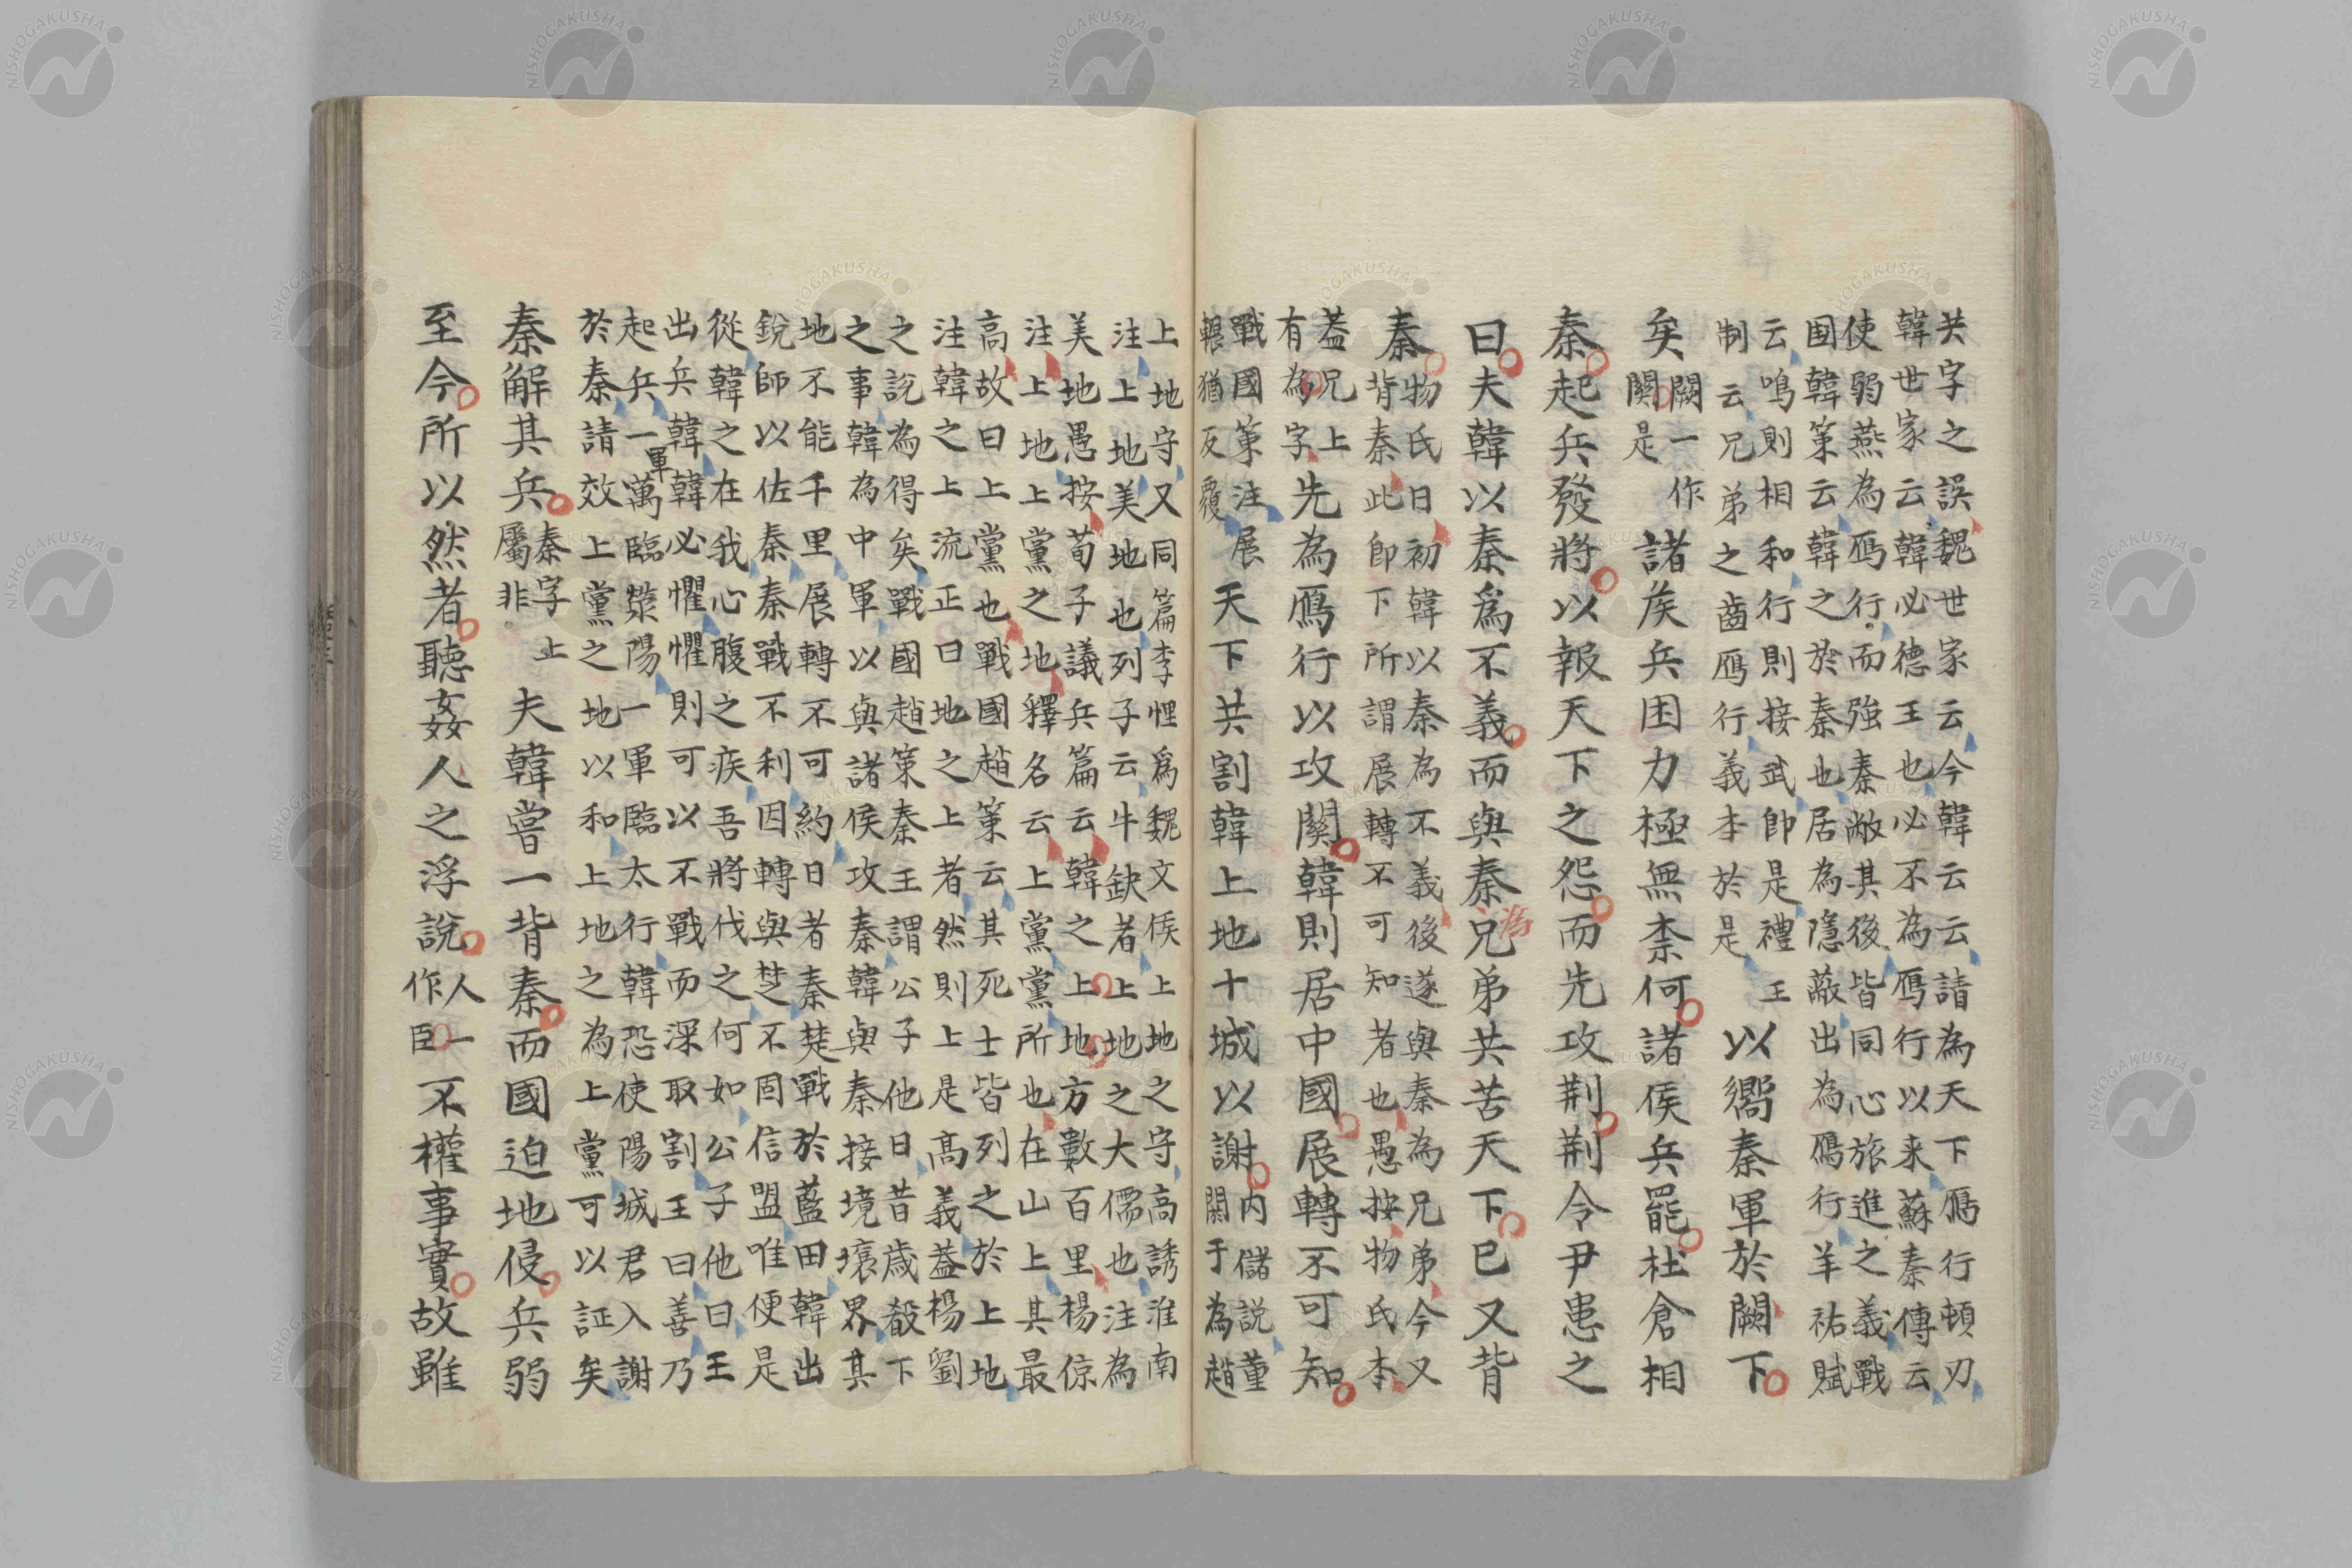 共字之誤魏世家云今韓云云請為天下鴈行頓刃
韓世家云韓必德王也必不為鴈行以来蘇秦傳云
使弱燕為鴈行而強秦敝其後皆同心旅進之義戰
国韓策云韓之於秦也居為隱蔽出為鴈行羊祜賦
云鳴則相和行則接武即是禮王
制云兄弟之齒鴈行義本於是
以嚮秦軍於闕下
矣
闕一作
關是
諸矦兵困力極無柰何諸侯兵罷杜倉相
秦起兵發將以報天下之怨而先攻荆荆令尹患之
曰夫韓以秦為不義而與秦兄弟共苦天下已又背
為
秦
物氏曰初韓以秦為不義後遂與秦為兄弟今又
背秦此即下所謂展轉不可知者也愚按物氏本
蓋兄上
有為字
先為鴈行以攻關韓則居中國展轉不可知
戰國策注展
輾猶反覆
天下共割韓上地十城以謝
内儲説董
閼于為趙
上地守又同篇李悝為魏文侯上地之守高誘淮南
注上地美地也列子云牛缺者上地之大儒也注為
美地愚按荀子議兵篇云韓之上地方數百里楊倞
注上地上黨之地釋名云上黨黨所也在山上其最
高故曰上黨也戰國趙策云其死士皆列之於上地
注韓之上流正曰地之上者然則上是高義蓋楊劉
之說為得矣戰國趙策秦王謂公子他曰昔歲殽下
之事韓為中軍以與諸侯攻秦韓與秦接境壤界其
地不能千里展轉不可約日者秦楚戰於藍田韓出
銳師以佐秦秦戰不利因轉與楚不固信盟唯便是
從韓之在我心腹之疾吾將伐之何如公子他曰王
出兵韓韓必懼懼則可以不戰而深取割王曰善乃
起兵一萬臨滎陽一軍臨太行韓恐使陽城君入謝
軍
於秦請效上黨之地以和上地之為上黨可以証矣
秦解其兵
秦字上
屬非
夫韓嘗一背秦而國迫地侵兵弱
至今所以然者聽姦人之浮說
人一
作臣
不權事實故雖
NISHOGAKUSHA